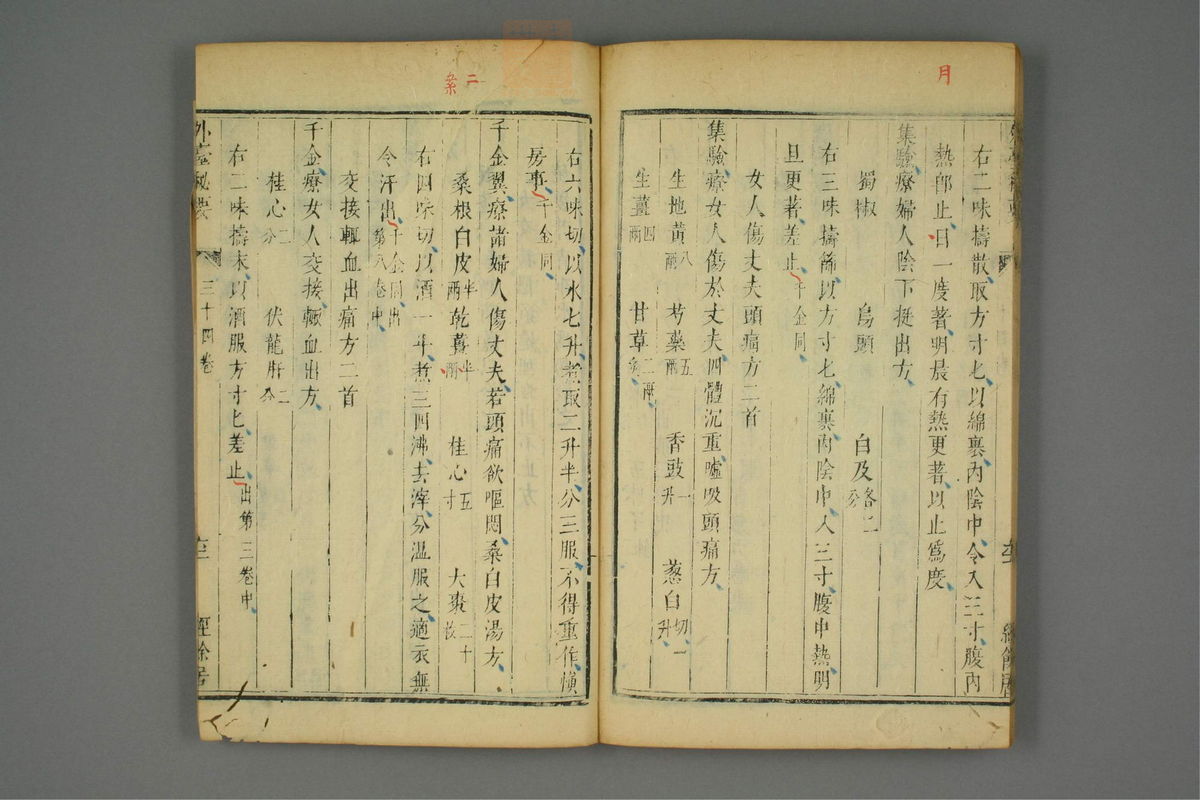 月
右二味擣散取方寸匕以綿裹內陰中令入三寸腹內
熱即止日一度著明晨有熱更著以止爲度
集驗療婦人陰下挺出方
蜀椒 烏頭 白及各二分
右三味擣篩以方寸匕綿裹內陰中入三寸腹中熱明
旦更著差止千金同
女人傷丈夫頭痛方二首
集驗療女人傷於丈夫四體沉重噓吸頭痛方
生地黃八兩 芍藥五兩 香豉一升 葱白切一升
生薑四兩 甘草二兩炙
二
右六味切以水七升煮取二升半分三服不得重作慎
房事千金同
千金翼療諸婦人傷丈夫若頭痛欲嘔悶桑白皮湯方
桑根白皮半兩 乾薑半兩 桂心五寸 大棗二十枚
右四味切以酒一斗煮三四沸去滓分溫服之適衣無
令汗出千金同出第八卷中
交接輒血出痛方二首
千金療女人交接輒血出方
桂心二分 伏龍肝二分
右二味擣末以酒服方寸匕差止出第三卷中
外臺秘要 三十四卷 經餘居